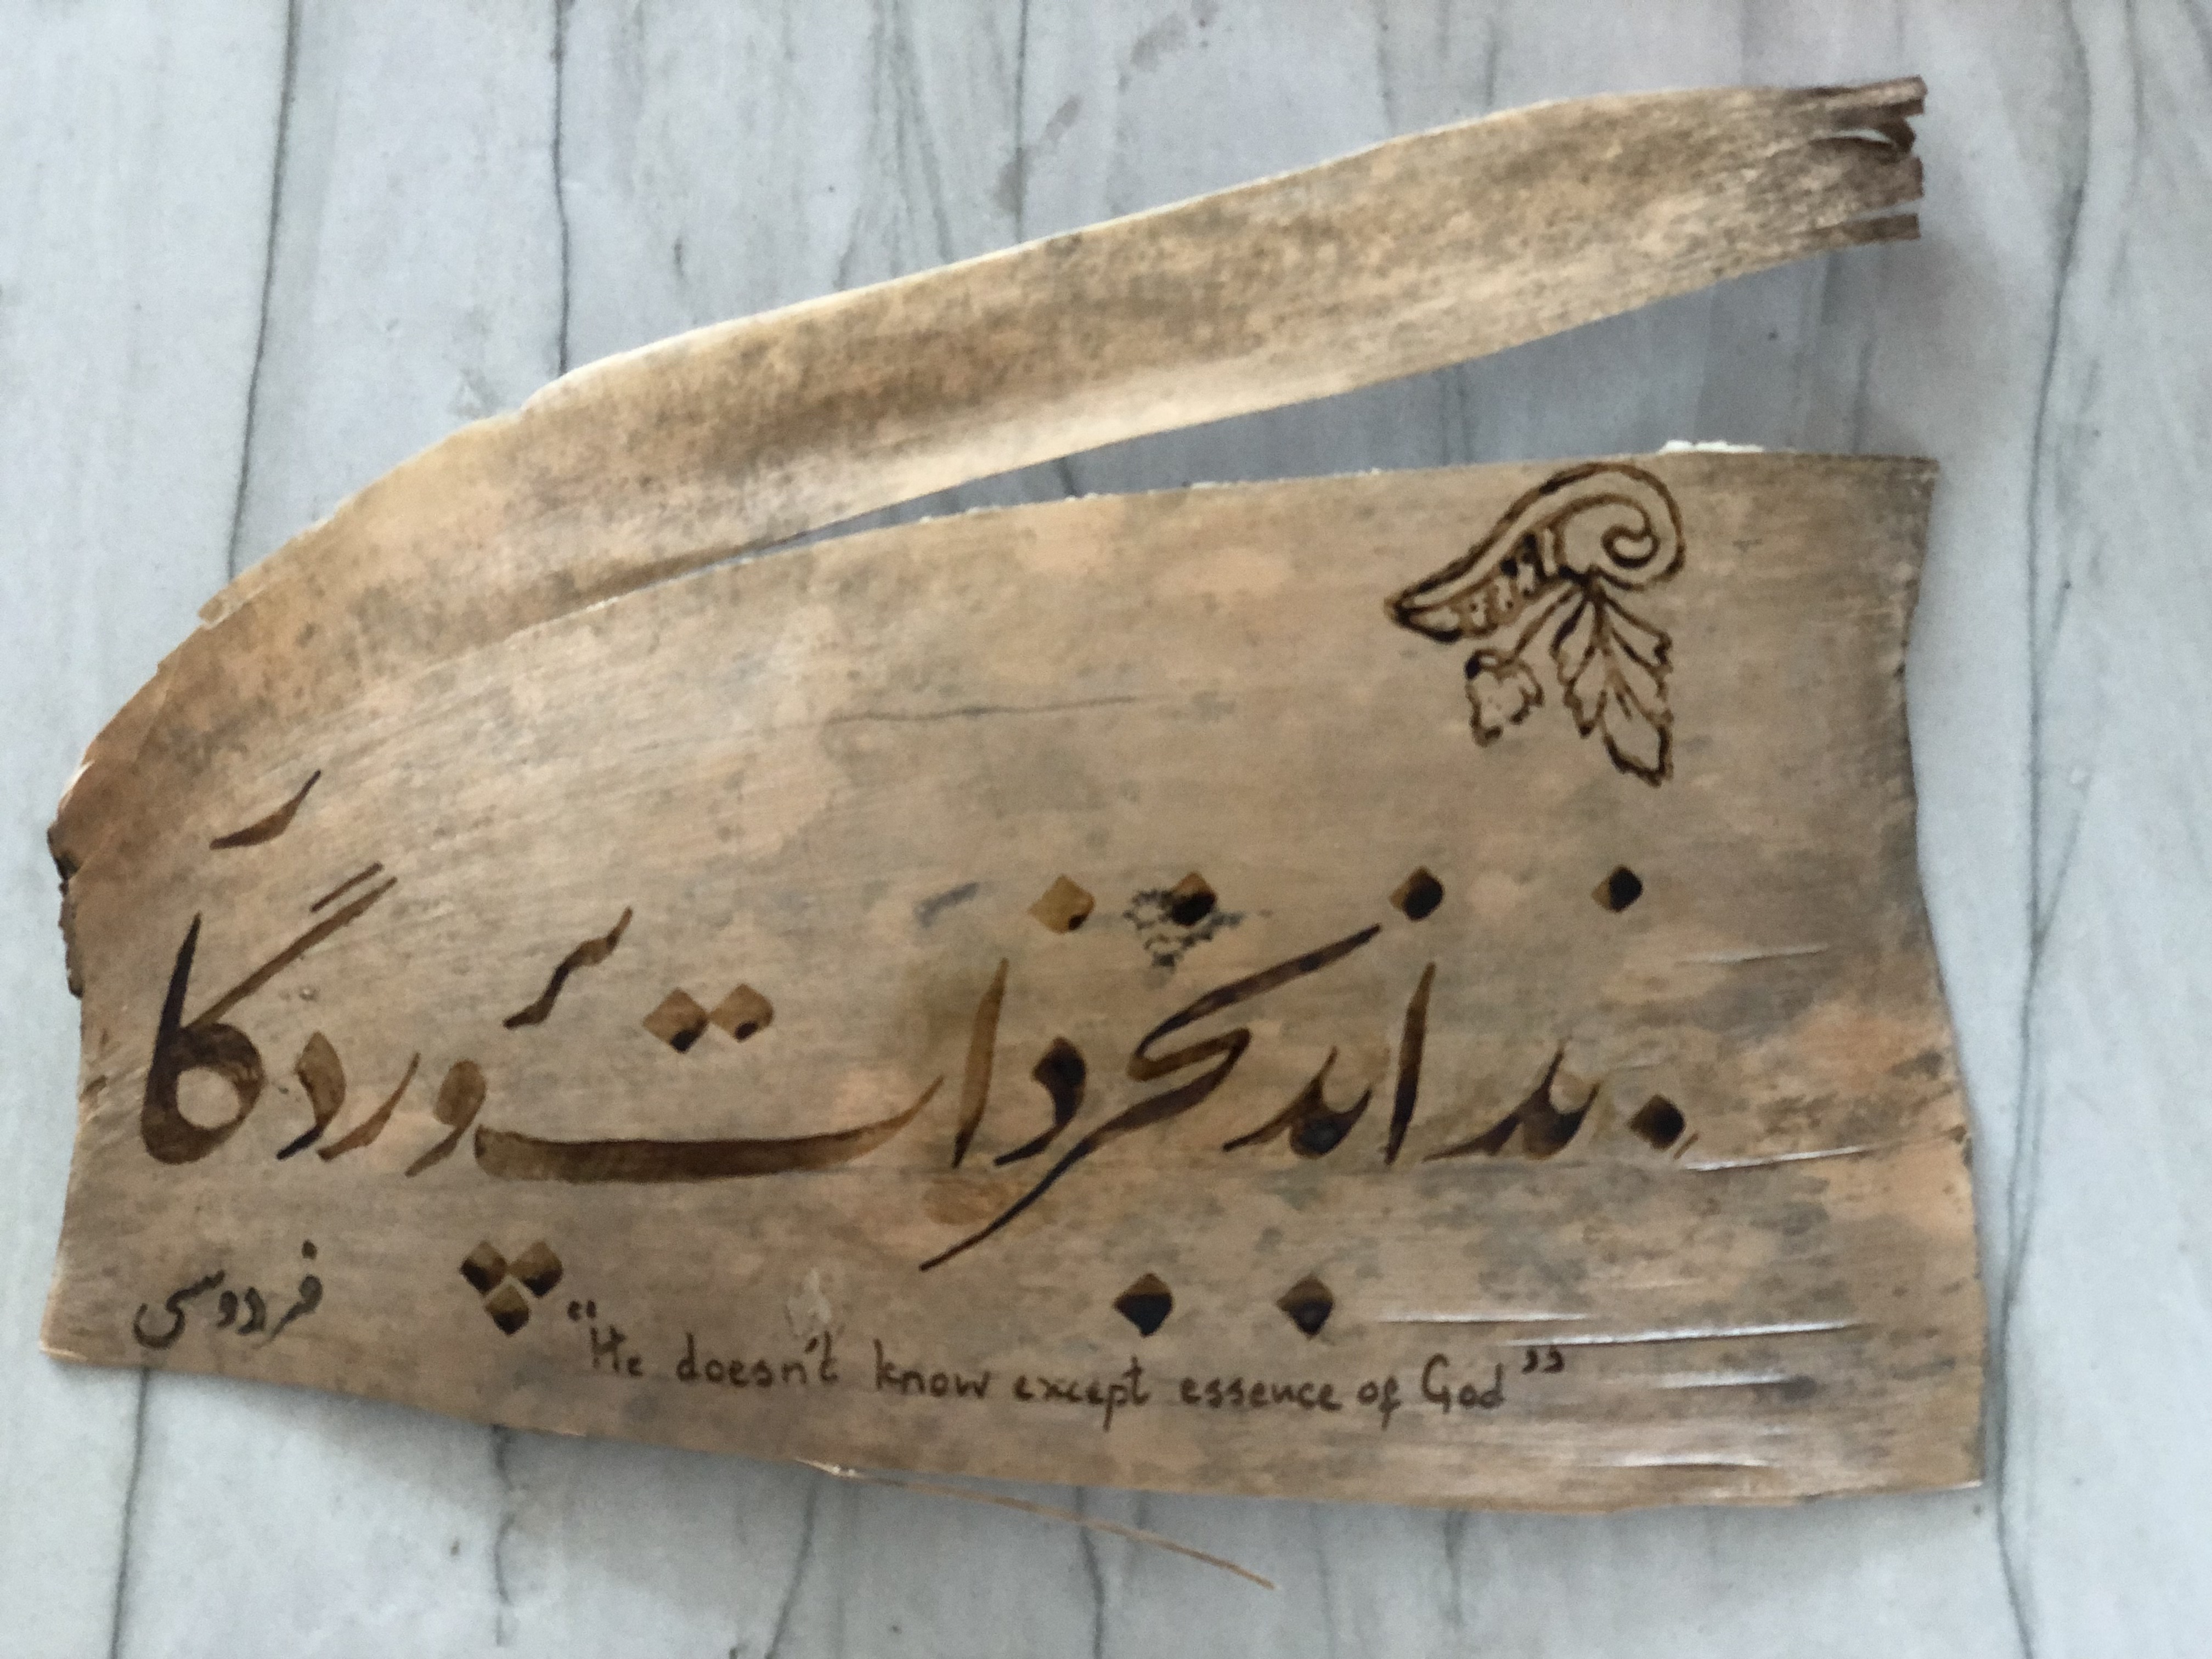 نداند بجز ذات پروردگار
فردوسی
"He doesn't know except essence of God"